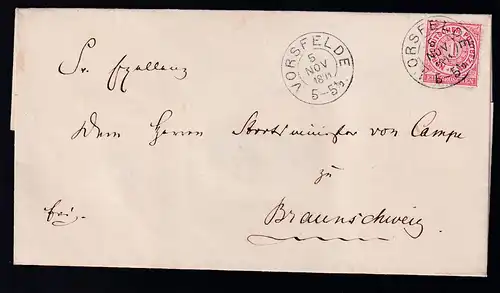 VORSFELDE
5
NOV
5-5½
VORSFELDE
NOV
Sr. Exzellenz
Dem Herrn Staatsminister von Campe
zu
frei.
Braunschweig